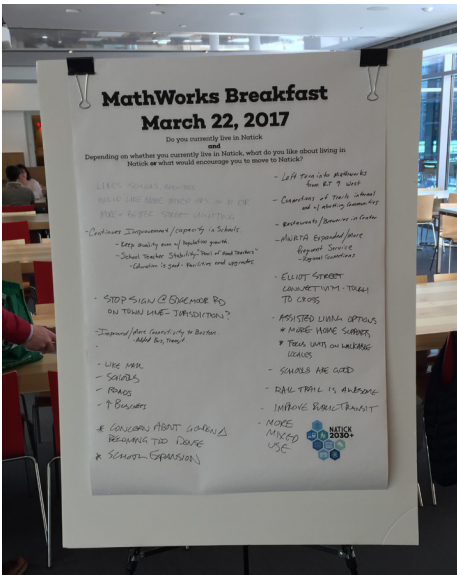 MathWorks Breakfast
March 22, 2017
Do you currently live in Natick
and
Depending on whether you currently live in Natick, what do you like about living in
Natick or what would encourage you to move to Natick?
LIKES SCHOOLS,
- Continues Improvement/capacity in Schools
- Keep quality even w/ population growth
- School Teacher Stability "Pool of Good Teachers"
- Education is good - Facilities and upgrades
- STOP SIGN @ EDGEMOOR RD
ON TOWN LINE - JURISDICTION?
- Improved/More Connectivity to Boston
- Added Bus, Transit
- LIKE MALL
- SCHOOLS
- ROADS
- ↑ BUSINESS
* CONCERN ABOUT
BECOMING TOO DENSE
* SCHOOL EXPANSION
- Left Turn into Mathworks
from RT 9 West
- Connections of Trails internal
and w/ abutting communities
- Restaurants/Breweries in Center
- MWRTA Expanded/More
Frequent Service
- Regional Connections
- ELLIOT STREET
CONNECTIVITY - TOUGH
TO CROSS
- ASSISTED LIVING OPTIONS
* MORE HOME SUPPORTS
* FOCUS UNITS ON WALKABLE
LOCALES
- SCHOOLS ARE GOOD
- RAIL TRAIL IS AWESOME
- IMPROVE PUBLIC TRANSIT
- MORE
MIXED
USE
NATICK
2030+